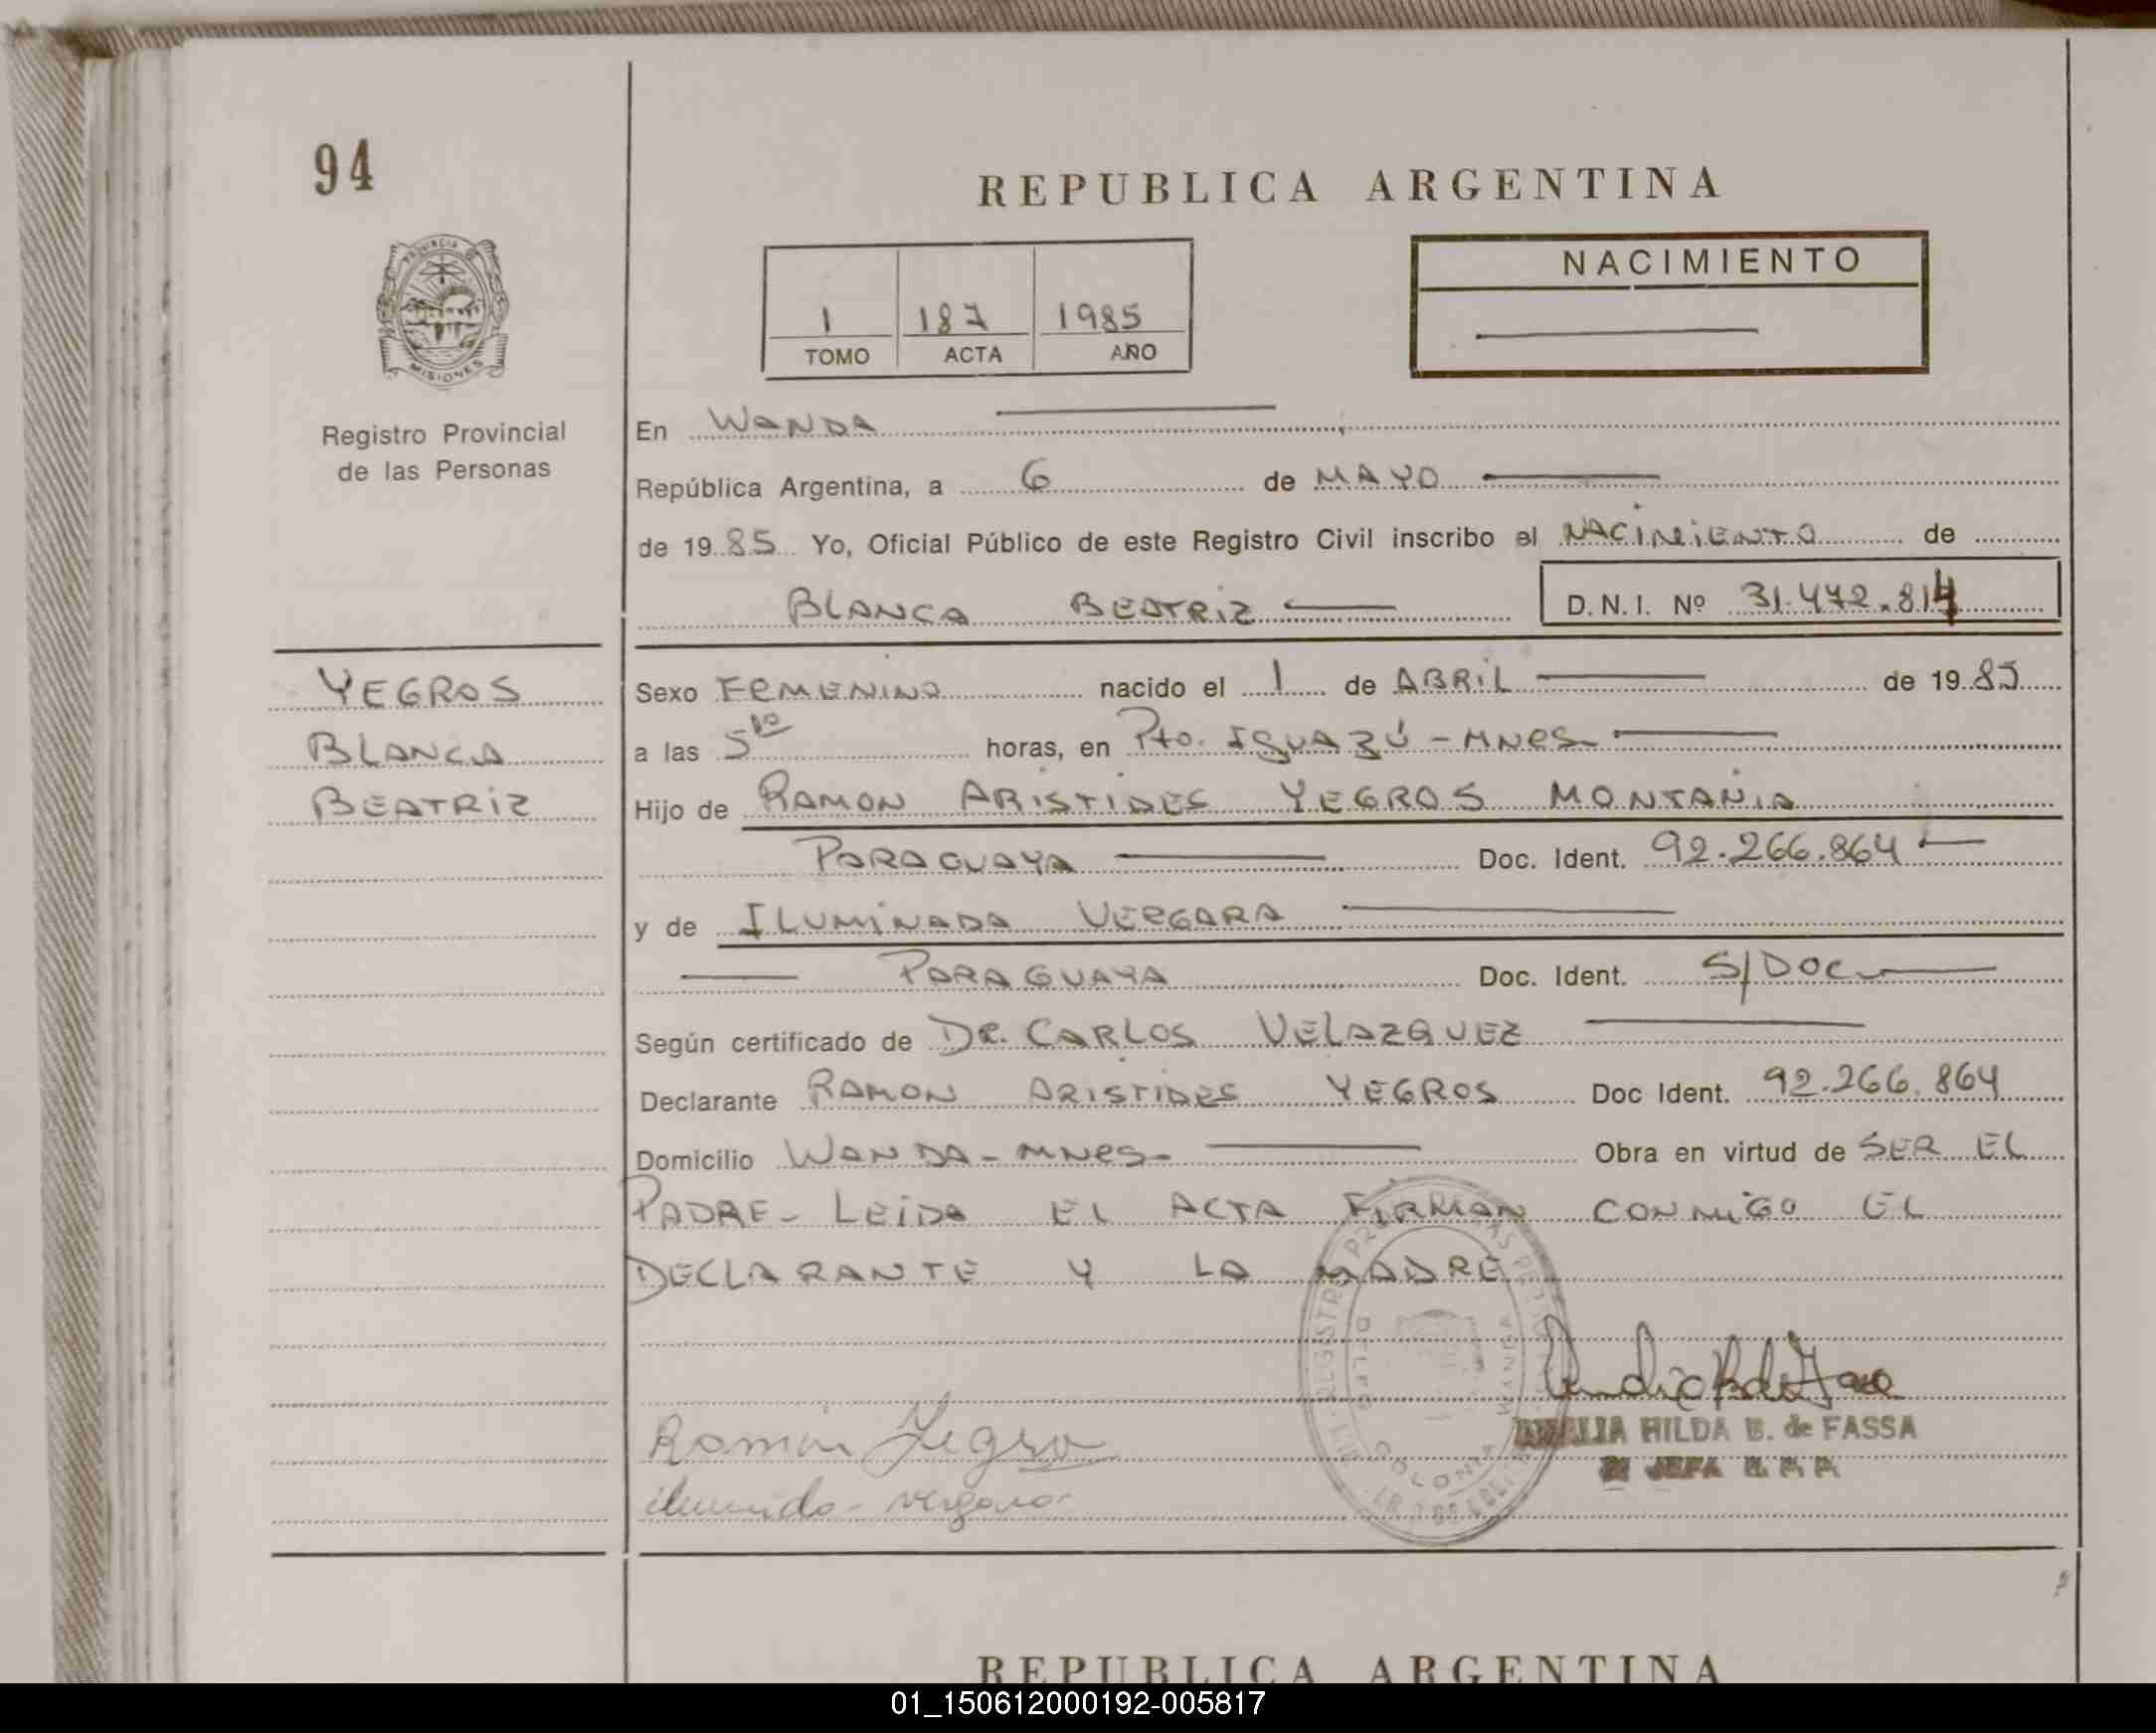 94
REPUBLICA ARGENTINA
NACIMIENTO
1 187 1985
TOMO ACTA AÑO
PROVINCIA DE
MISIONES
Registro Provincial
de las Personas
En WANDA
República Argentina, a 6 de MAYO
de 1985 Yo, Oficial Público de este Registro Civil inscribo el NACIMIENTO de
BLANCA BEATRIZ D.N.I. Nº 31.472.814
YEGROS
BLANCA
BEATRIZ
Sexo FEMENINO nacido el 1 de ABRIL de 1985
a las 5 10 horas, en Pto. IGUAZÚ - MNES-
Hijo de RAMON ARISTIDES YEGROS MONTANIA
PARAGUAYA Doc. Ident. 92.266.864
y de ILUMINADA VERGARA
PARAGUAYA Doc. Ident. S/DOC
Según certificado de DR. CARLOS VELAZQUEZ
Declarante RAMON ARISTIDES YEGROS Doc Ident. 92.266.864
Domicilio WANDA - MNES- Obra en virtud de SER EL
PADRE- LEIDA EL ACTA FIRMAN CONMIGO EL
DECLARANTE Y LA MADRE
HILDA B. de FASSA
JEFA
Ramón Yegro
vergara
COLONIA
REPUBLICA ARGENTINA
01_150612000192-005817